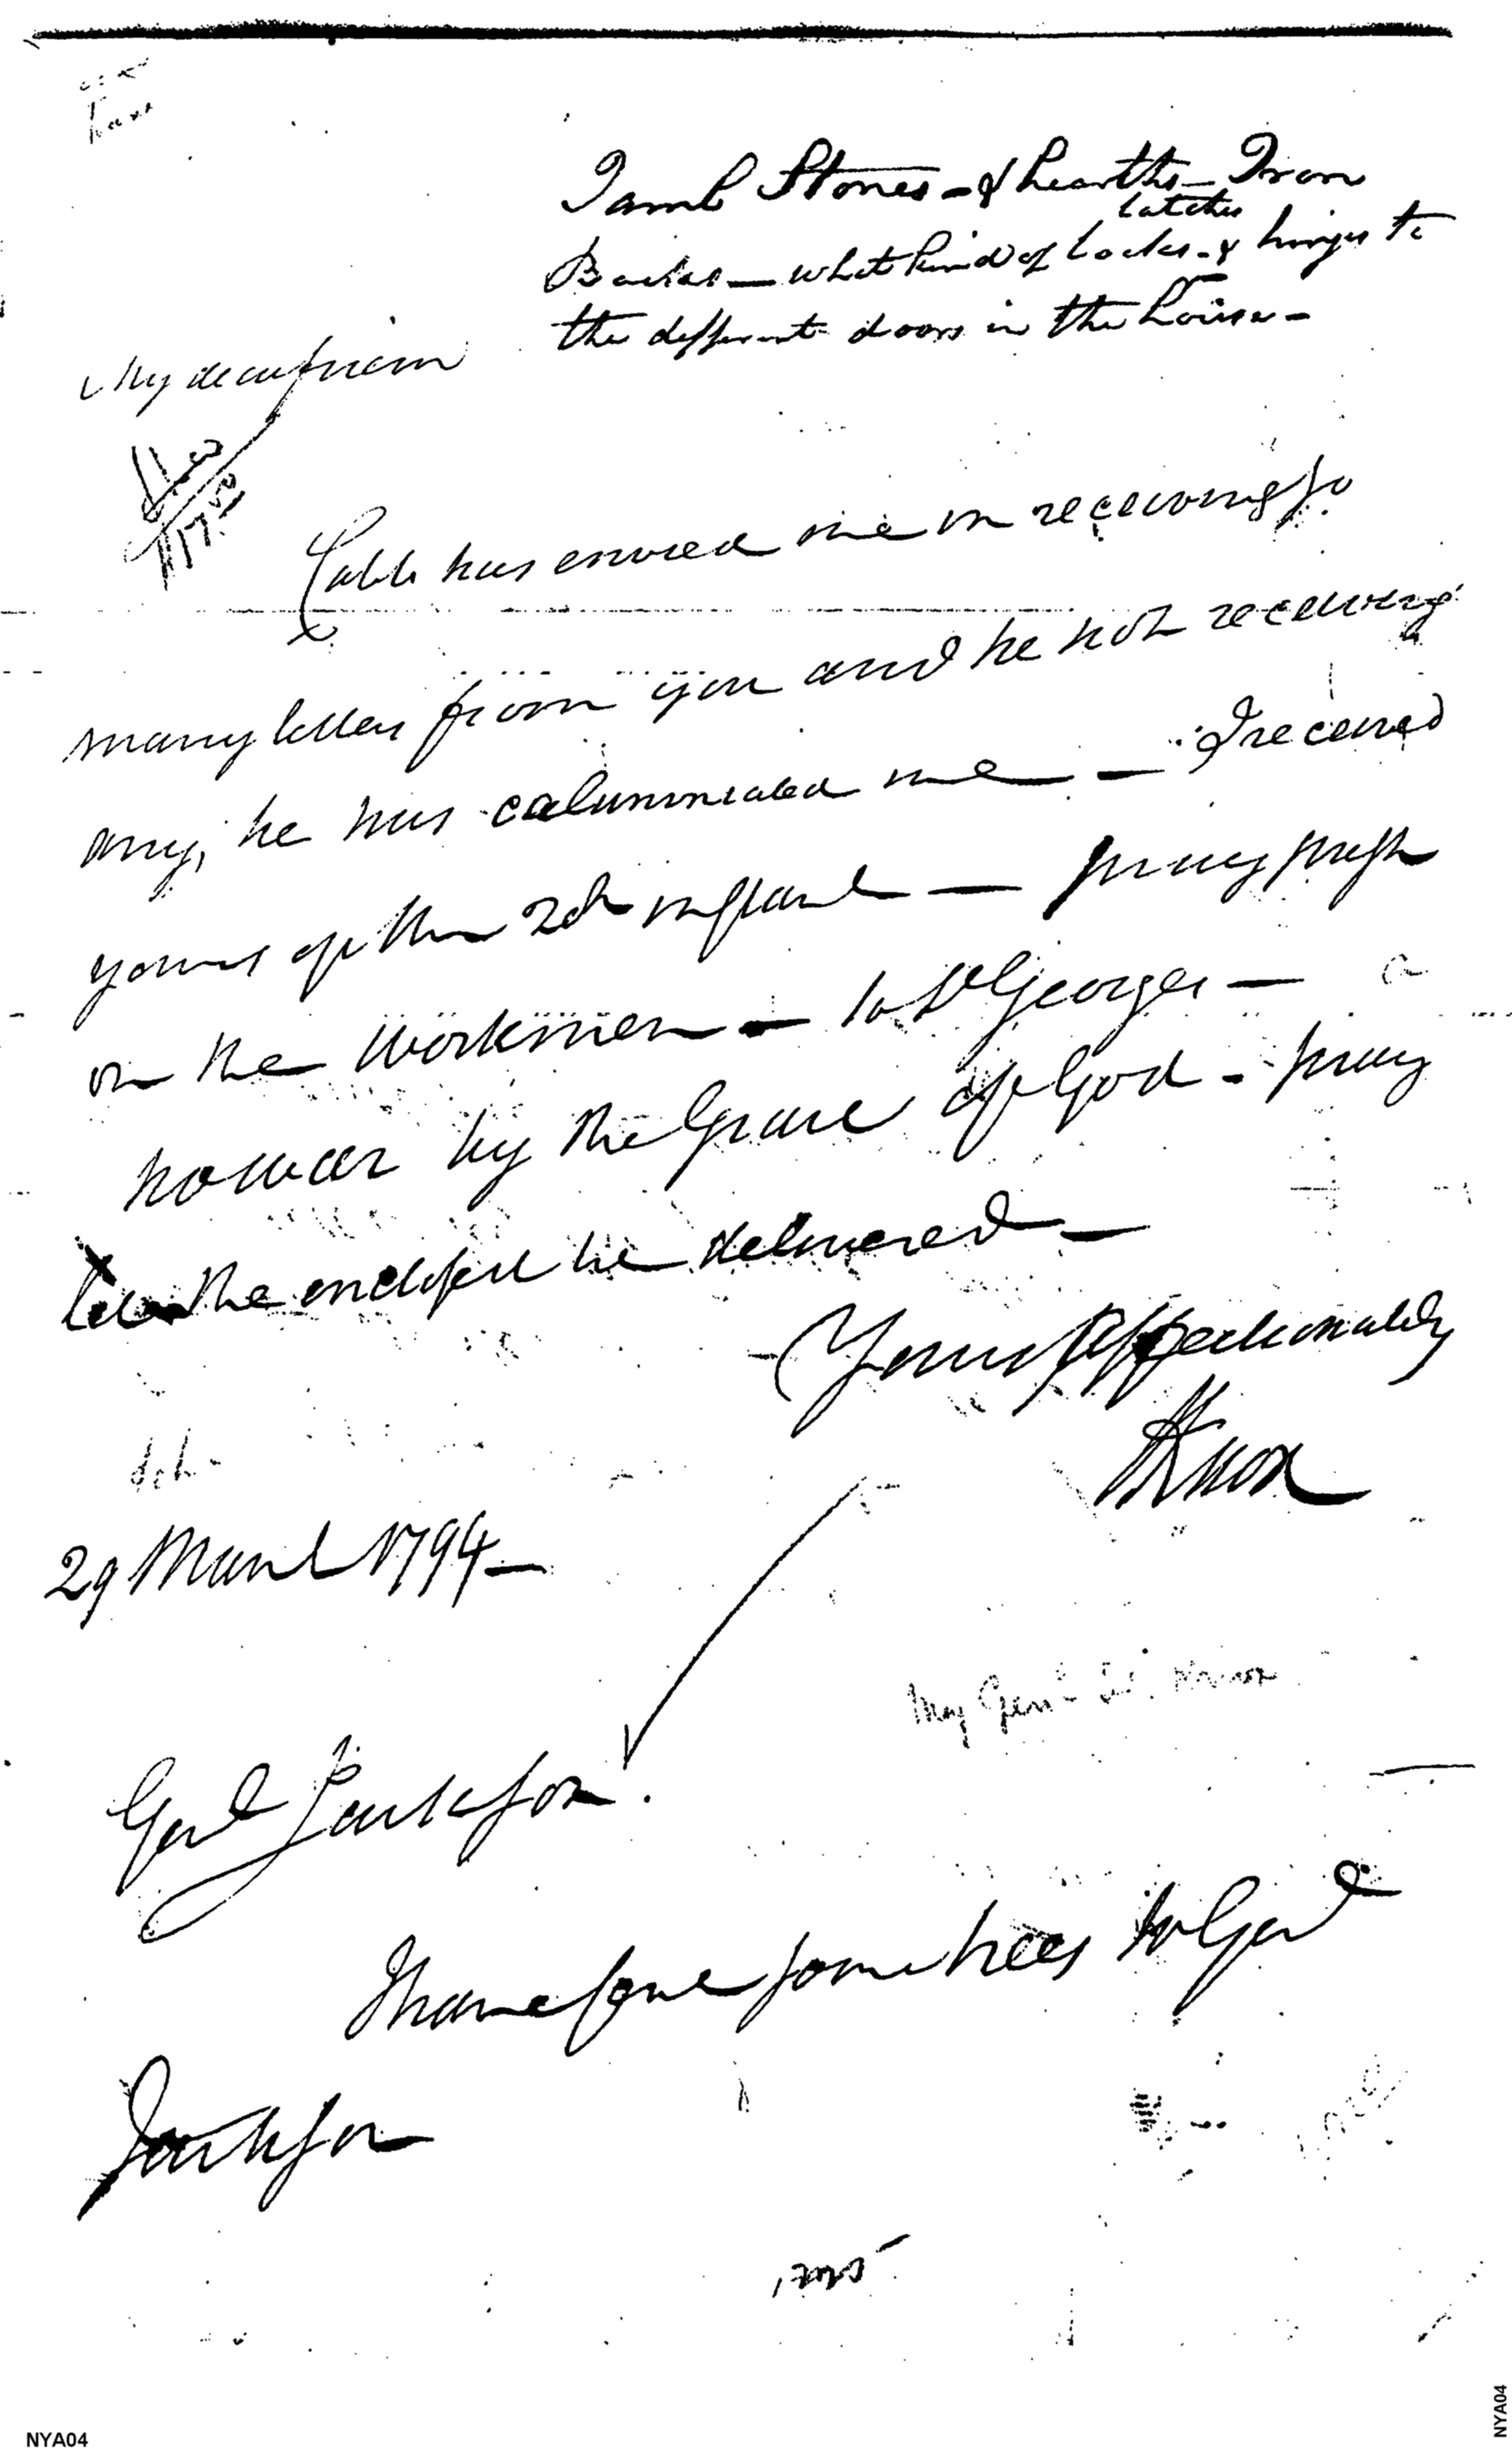 Jamb Stones - & hearths - Iron
latches
Backs - what kind of locks - & hinges to
the different doors in the house -
My dear friend
Cobb has envied me in receiving so
many letters from you and he not receiving
any, he has calumniated me - I received
yours of the 2d instant - pray push
on the workmen - to St Georges - a
however by the Grace of God - pray
the enclosed be delivered -
Yours Affectionately
HKnox
29 March 1794 -
Genl Jackson.
some trees to Genl
Jackson
NYA04
NYA04